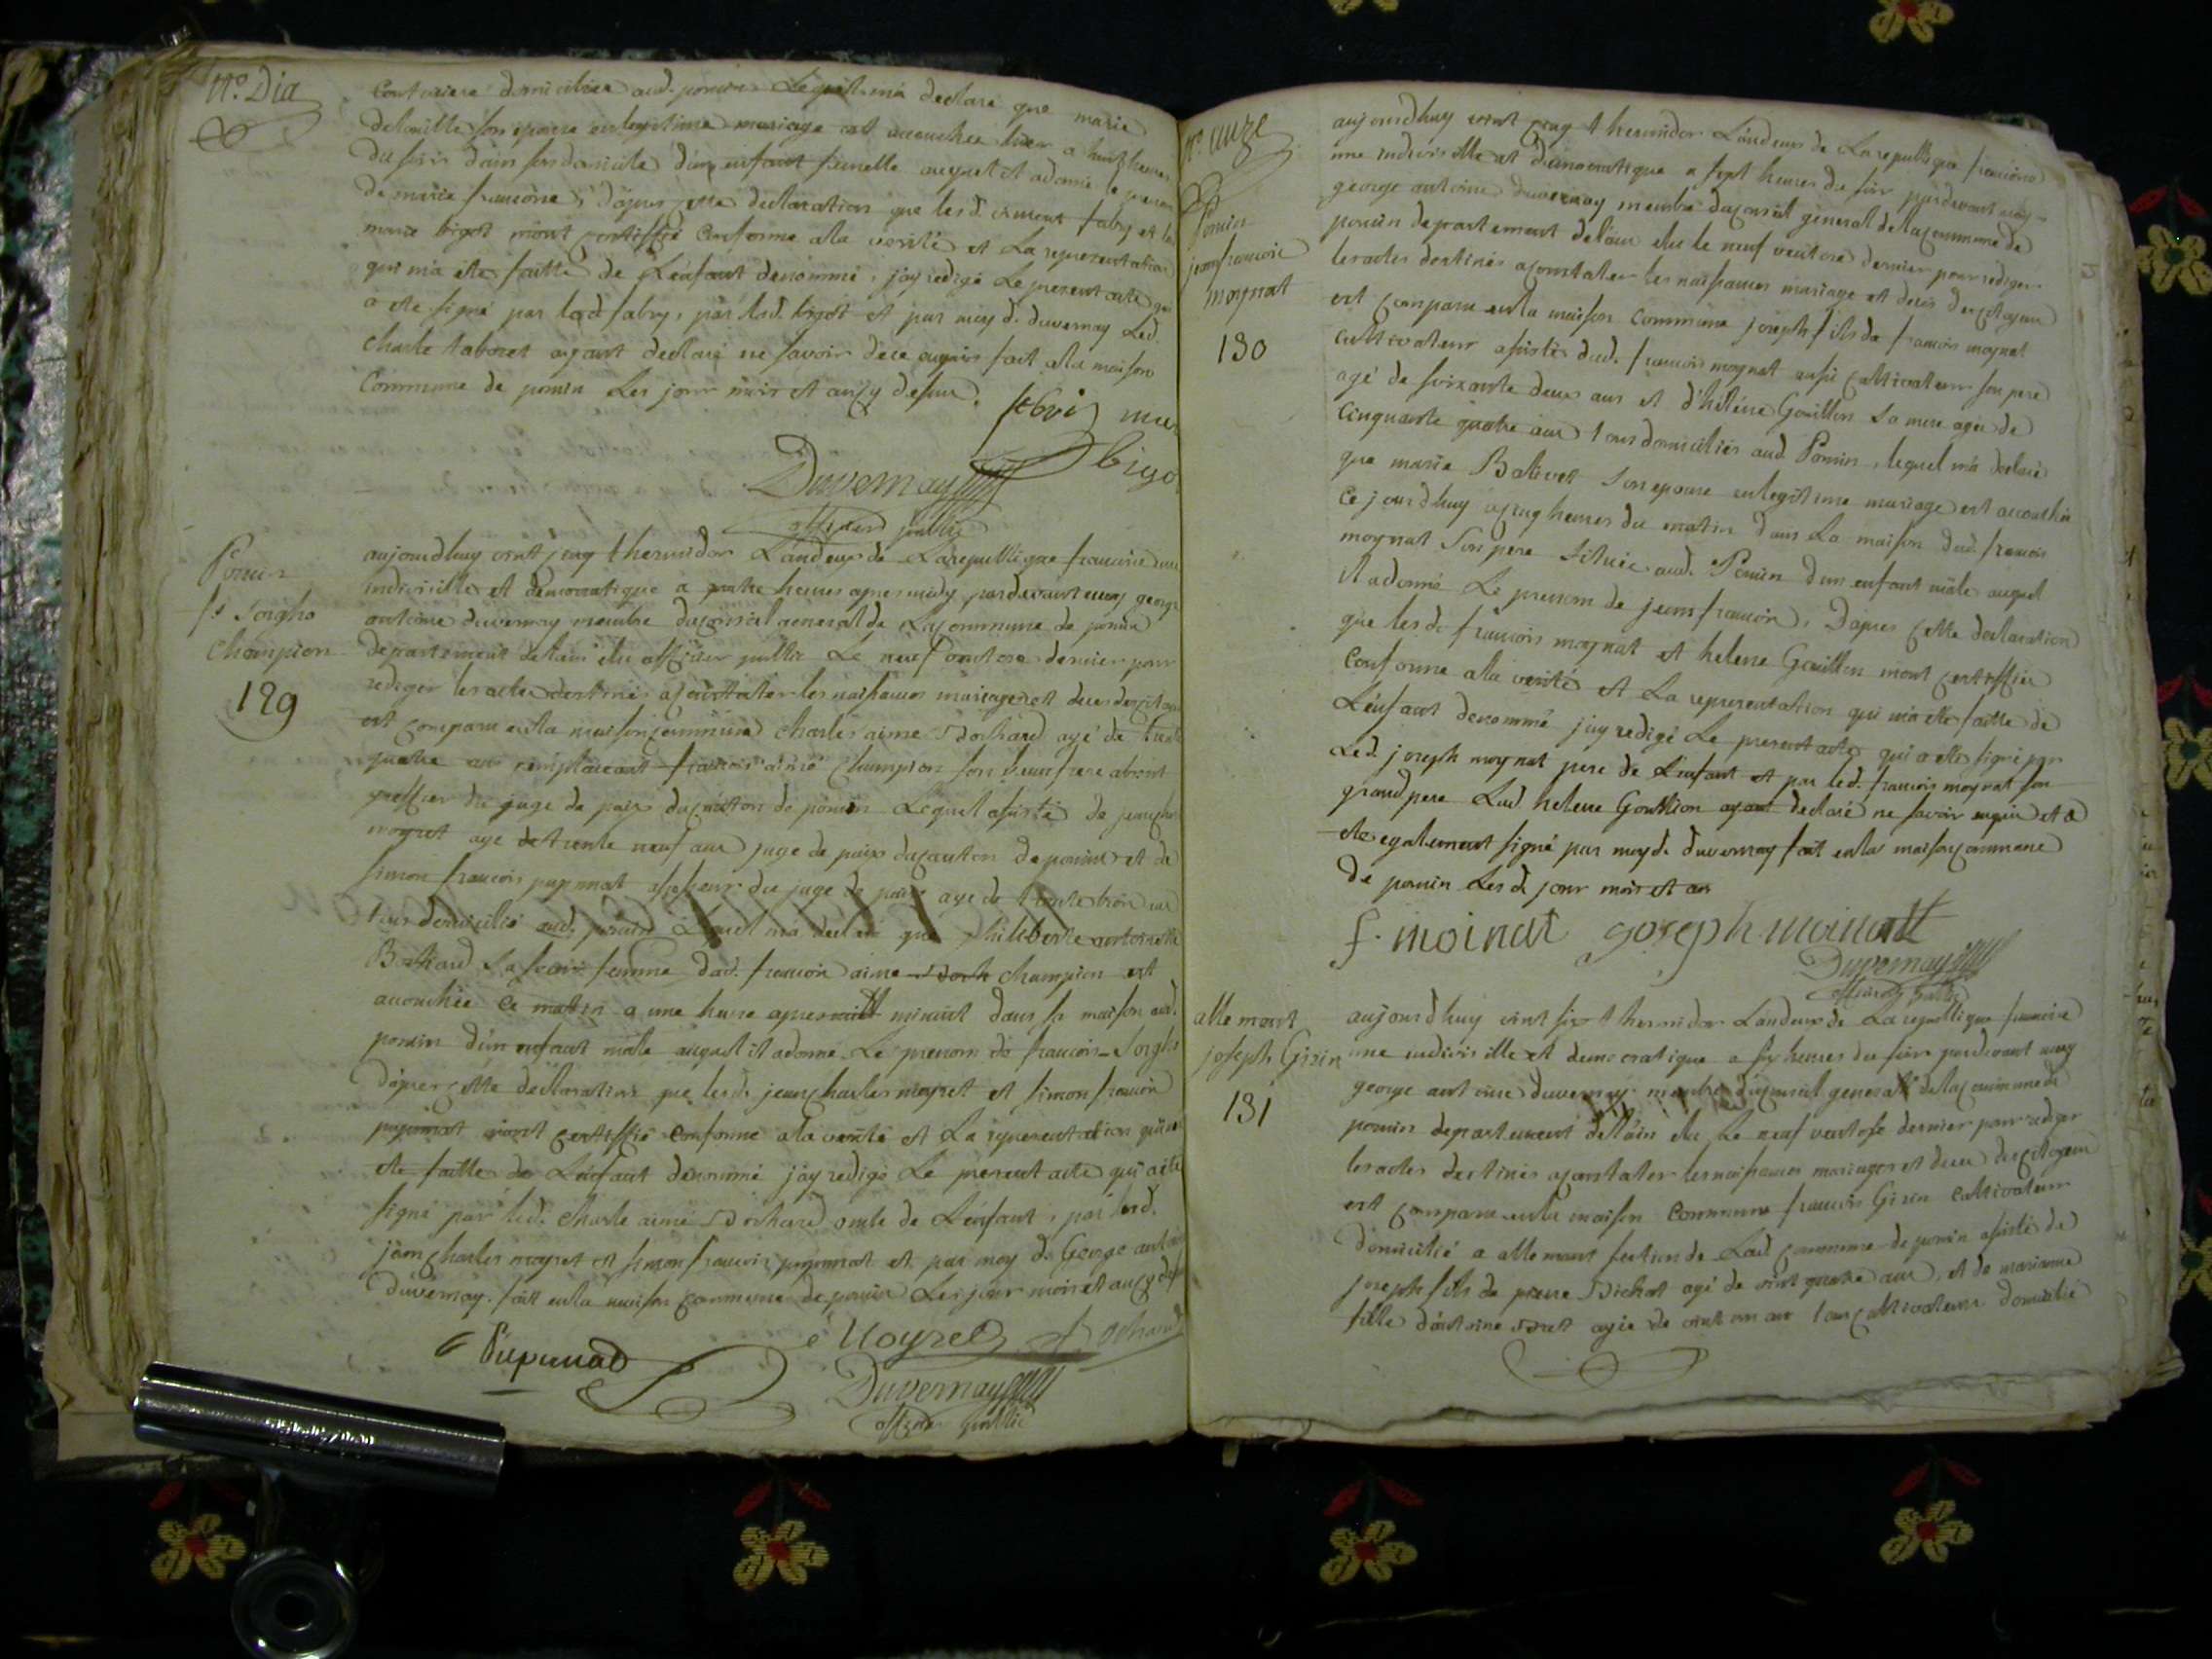 n.o Dia
couturiere domiciliée aud. poncin Lequel ma declaré que marie
son epouse en legitime mariage est accouchée hier a huit heures
du soir dans son domicile d'un enfant femelle auquel il a donné le prenom
de marie francoise, d'apres cette declaration que lesd. fabry et
marie bigot m'ont certiffié conforme a la verité et La representation
qui m'a ete faitte de L'enfant denommé, j'ay redigé Le present acte qui
a ete signé par led fabry, par lad. bigot et par moy d. duvernay Led.
charle tabouret ayant declaré ne savoir de ce requis fait a la maison
Commune de poncin Les jour mois et an cy dessus.
febvri mari
bigo
Duvernay
officier public
Poncin
f.s Sorgho
Champion
129
aujourdhuy vint cinq thermidor L'an deux de La republique francoise une
indivisible et democratique a quatre heures apres midy pardevant moy george
antoine duvernay membre du conseil general de La commune de poncin
departement de l'ain elu officier public Le neuf ventose dernier pour
rediger les actes destinés a constater les naissances mariages et deces des citoyens
est comparu en la maison commune charles aimé Bochard agé de trente
quatre ans remplacant francois aimé Champion son beau frere absent
greffier du juge de paix du canton de poncin Lequel assisté de jean charles
moyret agé de trente neuf ans juge de paix du canton de poncin et de
simon francois pupunat assesseur du juge de paix agé de trente trois ans
tous domiciliés aud. poncin Lequel m'a declaré que philiberte antoinette
Bochard sa soeur femme dud. francois aimé Boch champion est
accouchée ce matin a une heure apres minuit dans sa maison aud.
poncin d'un enfant male auquel il a donné Le prenom de francois-Sorgho
d'apres cette declaration que lesd. jean charles moyret et simon francois
pupunat m'ont certiffié conforme a la verité et La representation qui m'a
ete faitte de L'enfant denommé j'ay redigé Le present acte qui a été
signé par led. charle aimé Bochard oncle de L'enfant, par lesd.
jean charles moyret et simon francois pupunat et par moy d. George antoine
Duvernay. fait en la maison commune de poncin Les jour mois et an cy dessus
Pupunat
Moyret
A. Bochard
Duvernay
officier public
n.o onze
Poncin
jean francois
moynat
130
aujourdhuy vint cinq thermidor L'an deux de La republique francoise
une indivisible et democratique a sept heures du soir pardevant moy
george antoine duvernay membre du conseil general de la commune de
poncin departement de l'ain elu le neuf ventose dernier pour rediger
les actes destinés a constater les naissances mariage et deces des citoyens
est comparu en la maison commune joseph fils de francois moynat
cultivateur assisté dud. francois moynat aussi cultivateur son pere
agé de soixante deux ans et d'hélène Gouillon sa mere agée de
cinquante quatre ans tous domiciliés aud. Poncin, lequel m'a declaré
que marie Bolivet son epouse en legitime mariage est accouchée
ce jourdhuy a cinq heures du matin dans La maison dud. francois
moynat son pere située aud. Poncin d'un enfant mâle auquel
il a donné Le prenom de jean francois, D'apres cette declaration
que lesd. francois moynat et helene Gouillon m'ont certiffiée
conforme a la verité et La representation qui m'a ete faitte de
L'enfant denommé j'ay redigé Le present acte qui a ete signé par
Led. joseph moynat pere de L'enfant et par led. francois moynat son
grand pere Lad helene Gouillion ayant declaré ne savoir requise et a
ete egalement signé par moy d. duvernay fait en la maison commune
de poncin Lesd. jour mois et an
f. moinat joseph moinatt
Duvernay
officier public
allemant
joseph Girin
131
aujourdhuy vint six thermidor L'an deux de La republique francoise
une indivisible et democratique a six heures du soir pardevant moy
george antoine duvernay membre du conseil general de la commune de
poncin departement de l'ain elu Le neuf ventose dernier pour rediger
les actes destinés a constater les naissances mariages et deces des citoyens
est comparu en la maison commune francois Girin cultivateur
domicilié a allemant section de Lad. commune de poncin assisté de
joseph fils de pierre Bichat agé de vint quatre ans, et de marianne
fille d'antoine agée de vint un ans tous cultivateurs domicilié